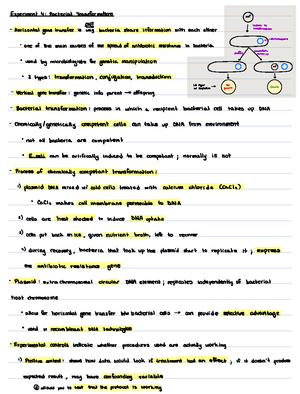 Experiment 4: Bacterial Transformation
DNA
- Horizontal gene transfer is way bacteria share information with each other
• one of the main causes of the spread of antibiotic resistance in bacteria
• used by microbiologists for genetic manipulation
• 3 types: transformation, conjugation, transduction
- Vertical gene transfer: genetic info parent → offspring
- Bacterial transformation: process in which a recipient bacterial cell takes up DNA
- Chemically/genetically competent cells can take up DNA from environment
• not all bacteria are competent
• E. coli can be artificially induced to be competent; normally is not
- Process of chemically competent transformation:
1) plasmid DNA mixed w/ cold cells treated with calcium chloride (CaCl2)
• CaCl2 makes cell membrane permeable to DNA
2) cells are heat shocked to induce DNA uptake
3) cells put back on ice, given nutrient broth, left to recover
4) during recovery, bacteria that took up the plasmid start to replicate it; express
the antibiotic resistance gene
- Plasmid: extrachromosomal circular DNA element; replicates independently of bacterial
host chromosome
• allow for horizontal gene transfer btw bacterial cells → can provide selective advantage
• used in recombinant DNA technologies
- Experimental controls indicate whether procedures used are actually working
1) Positive control: shows how data would look if treatment had an effect; if it doesn't produce
expected result, may have confounding variable
allows you to test that the protocol is working